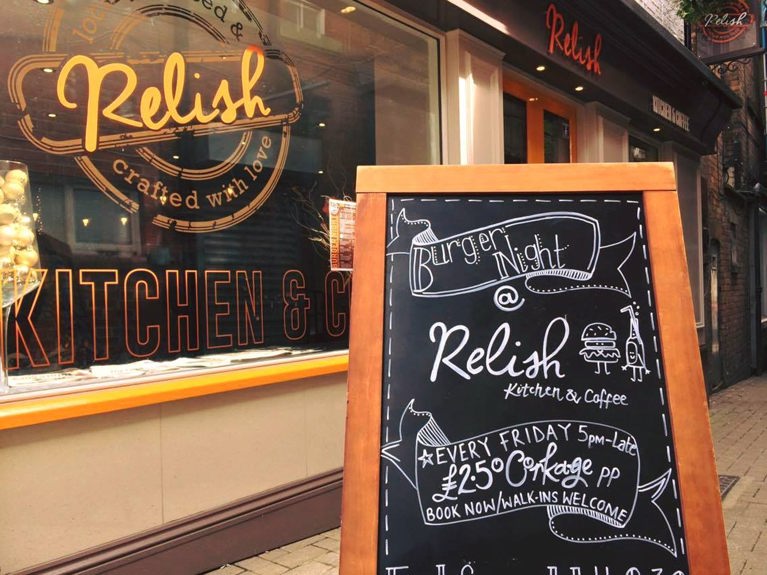 Relish
crafted with love
KITCHEN & C
Relish
KITCHEN & COFFEE
Relish
Burger Night
@
Relish
Kitchen & Coffee
EVERY FRIDAY 5pm-Late
£2.50 Corkage PP
BOOK NOW/WALK-INS WELCOME